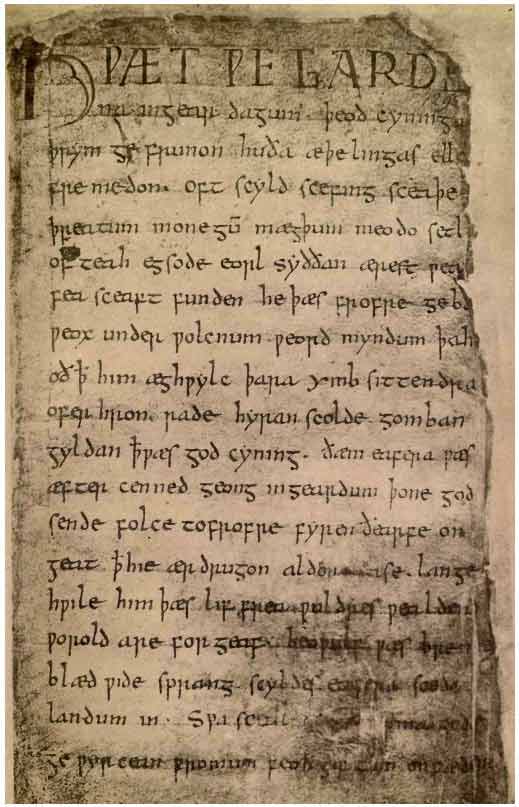 HǷÆT ǷE GARDE
na ingear dagum. þeod cyninga
þrym ge frunon huða æþelingas elle
fremedon. oft scyld scefing sceaþe
þreatum monegū mægþum meodo setl
of teah egsode eorl syððan ærest ƿea
fea sceaft funden he þæs frofre geba
ƿeox under ƿolcnum ƿeorð myndum þah
oð ꝥ him æghƿylc þara ymb sittendra
ofer hron rade hyran scolde gomban
gyldan ꝥ ƿæs god cyning. ðæm eafera ƿæs
æfter cenned geong ingeardum þone god
sende folce tofrofre fyren ðearfe on
geat ꝥ hie ær drugon aldor ase. lange
hƿile him þæs lif frea ƿuldres ƿealdend
ƿorold are for geaf. beoƿulf ƿæs breme
blæd ƿide sprang scyldes eafera scede
landum in. Sƿa sceal guma gode
ge ƿyrcean fromum feoh giftum on fæder